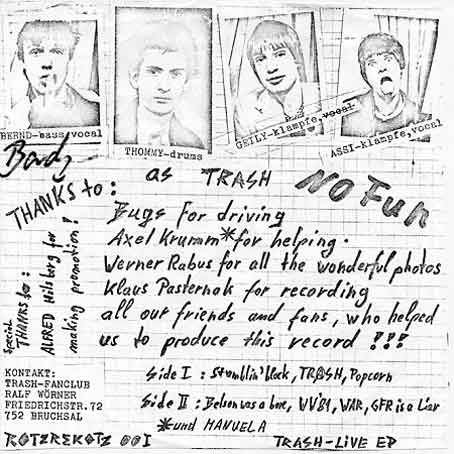 BERND-bass, vocal
THOMMY-drums
GEILY-klampfe, vocal
ASSI-klampfe, vocal
as TRASH
NO FUN
THANKS to:
Bugs for driving
Axel Krumm* for helping.
Werner Rabus for all the wonderful photos
Klaus Pasternak for recording
all our friends and fans, who helped
us to produce this record !!!
Special
THANKS to:
ALFRED Hilsberg for
making promotion!
KONTAKT:
TRASH-FANCLUB
RALF WÖRNER
FRIEDRICHSTR.72
752 BRUCHSAL
ROTZREKOTZ 001
Side I : Stumblin' block, TRASH, Popcorn
Side II : Belsen was a bore, WV'81, WAR, GFR is a Liar
*und MANUELA
TRASH-LIVE EP